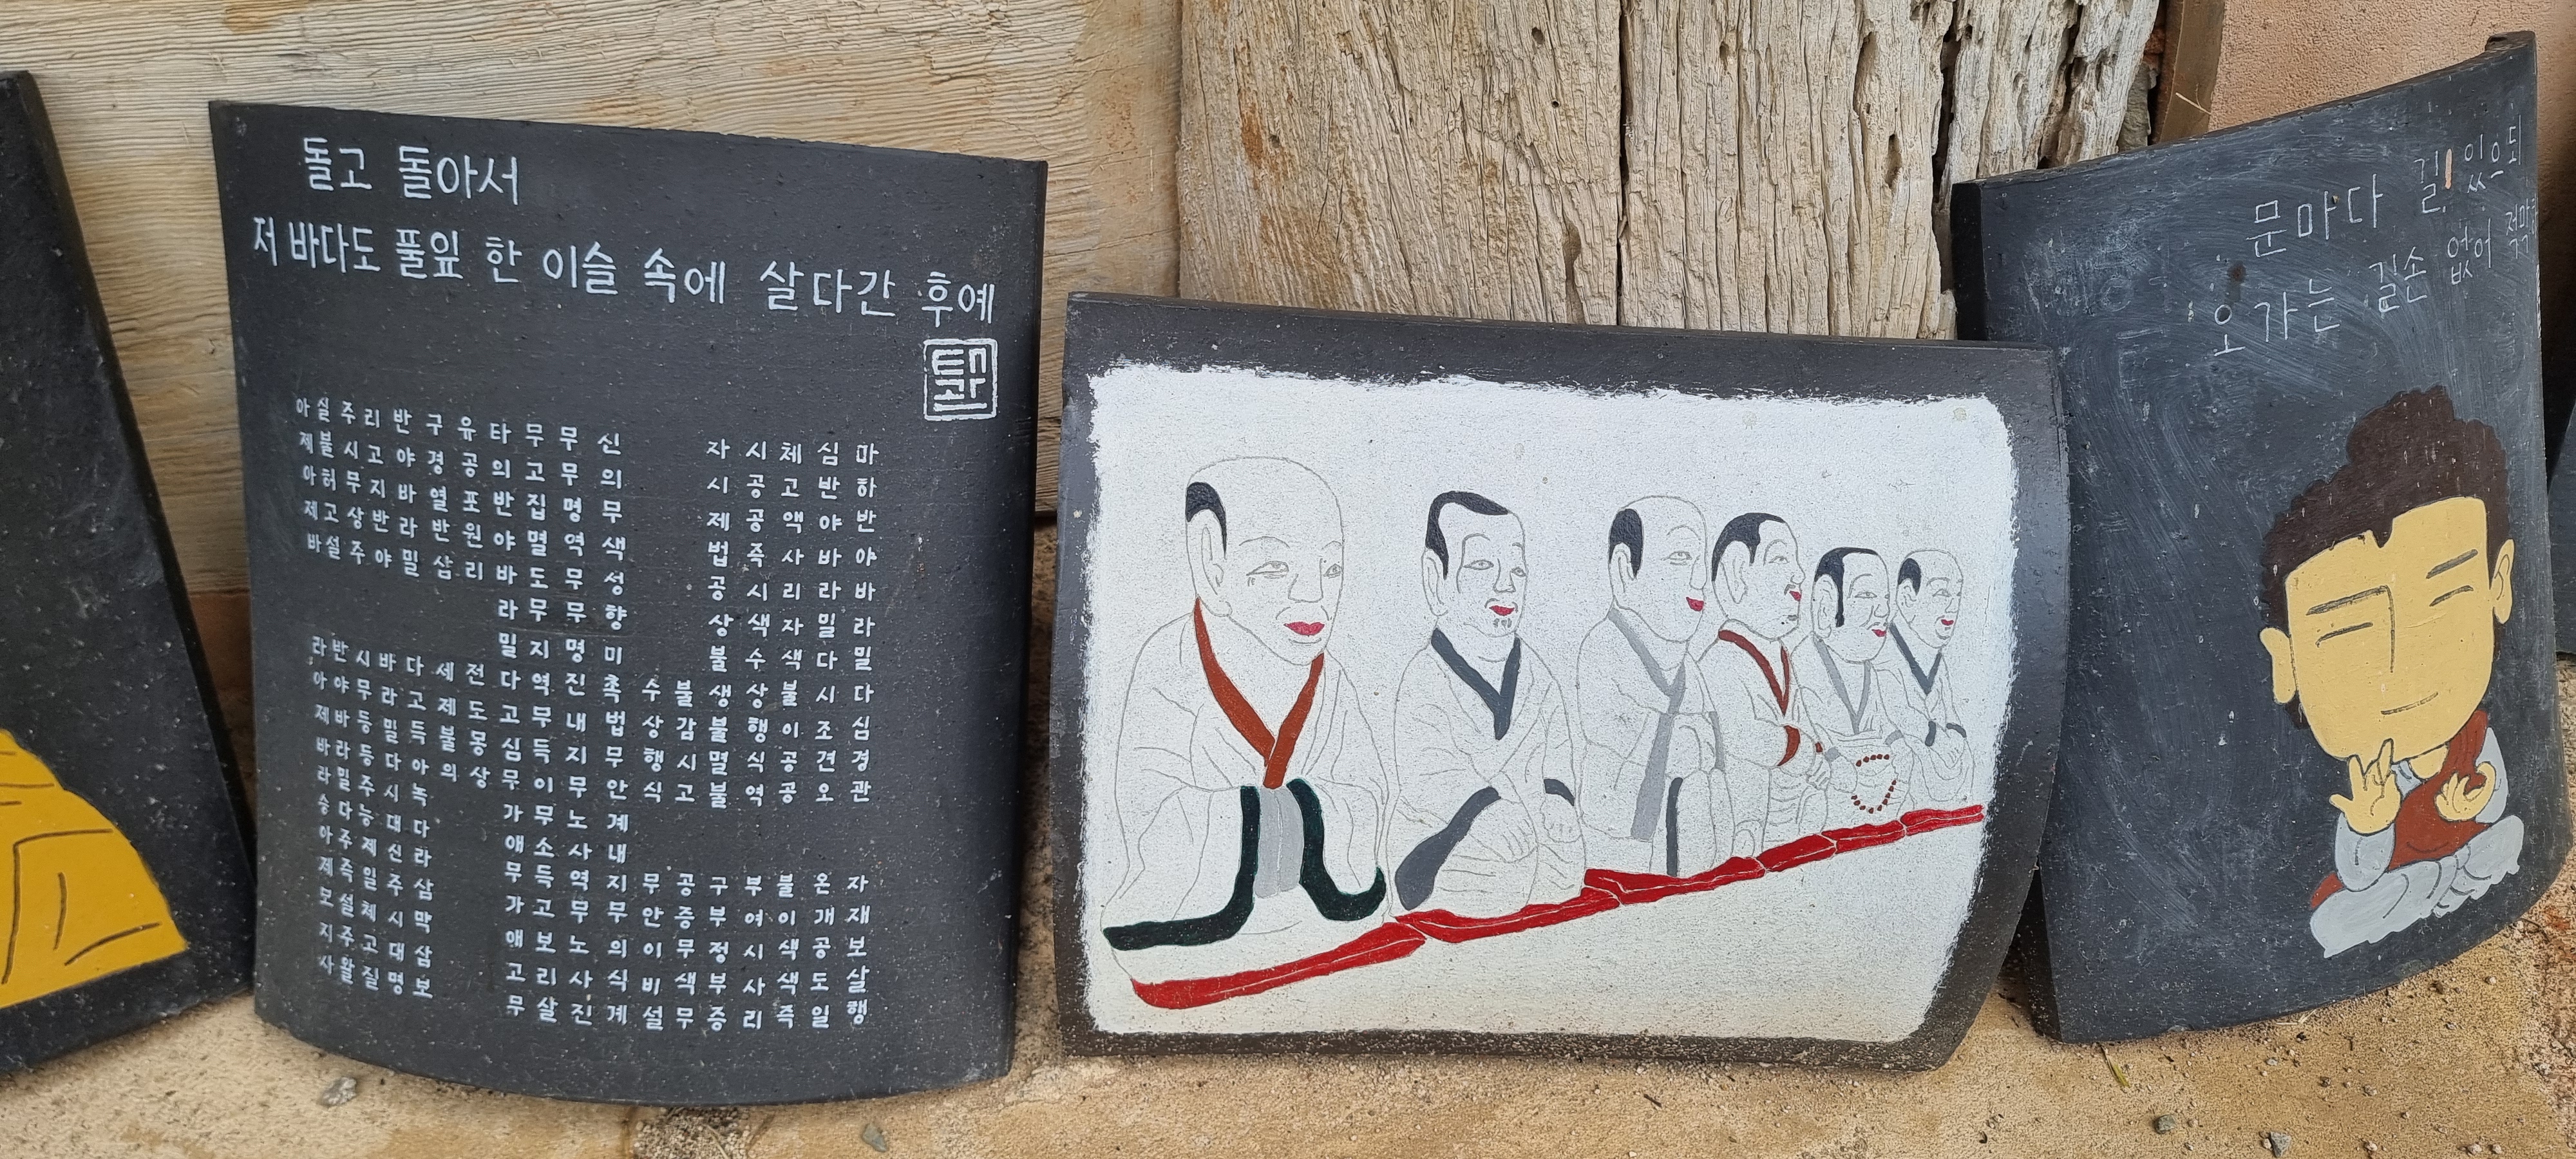 돌고 돌아서
저 바다도 풀잎 한 이슬 속에 살다간 후예
마하반야바라밀다십경관자재보살행
심반야바라밀다시조견오온개공도일
체고액사리자색불이공공불이색색즉
시공공즉시색수상행식역부여시사리
자시제법공상불생불멸불구부정부증
불감시고공증무색무
수상행식무안이비설
신의무색성향미촉법무안계내지무의식계
무무명역무무명진내지무노사역무노사진
무고집멸도무지역무득이무소득고보리살
타의반야바라밀다고심무가애무가애고무
유공포원리전도몽상
구경열반삼세제불의
반야바라밀다고득아녹다라삼막삼보
리고지반야바라밀다시대신주시대명
주시무상주시무등등주능제일체고질
실불허고설반야바라밀다주즉설주왈
아제아제바라아제바라승아제모지사
문마다 길 있으되
오가는 길손 없어 적막